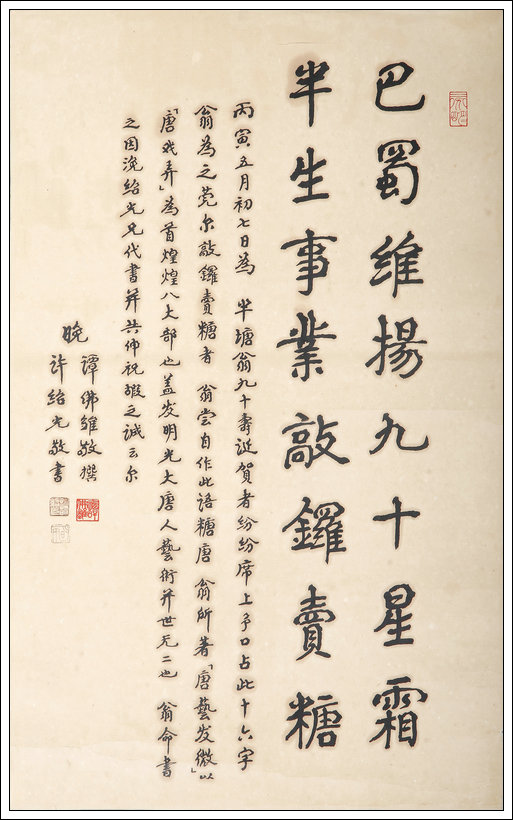 巴蜀維揚九十星霜
半生事業敲鑼賣糖
丙寅五月初七日為 半塘翁九十壽誕賀者紛紛席上予口占此十六字
翁為之莞尔敲鑼賣糖者 翁嘗自作此語糖唐 翁所著「唐藝发微」以
「唐戏弄」為首煌煌八大部也盖发明光大唐人藝術并世无二也 翁命書
之因浼紿尢兄代書并共伸祝嘏之誠云尔
晚 譚佛雛敬撰
許紹光敬書